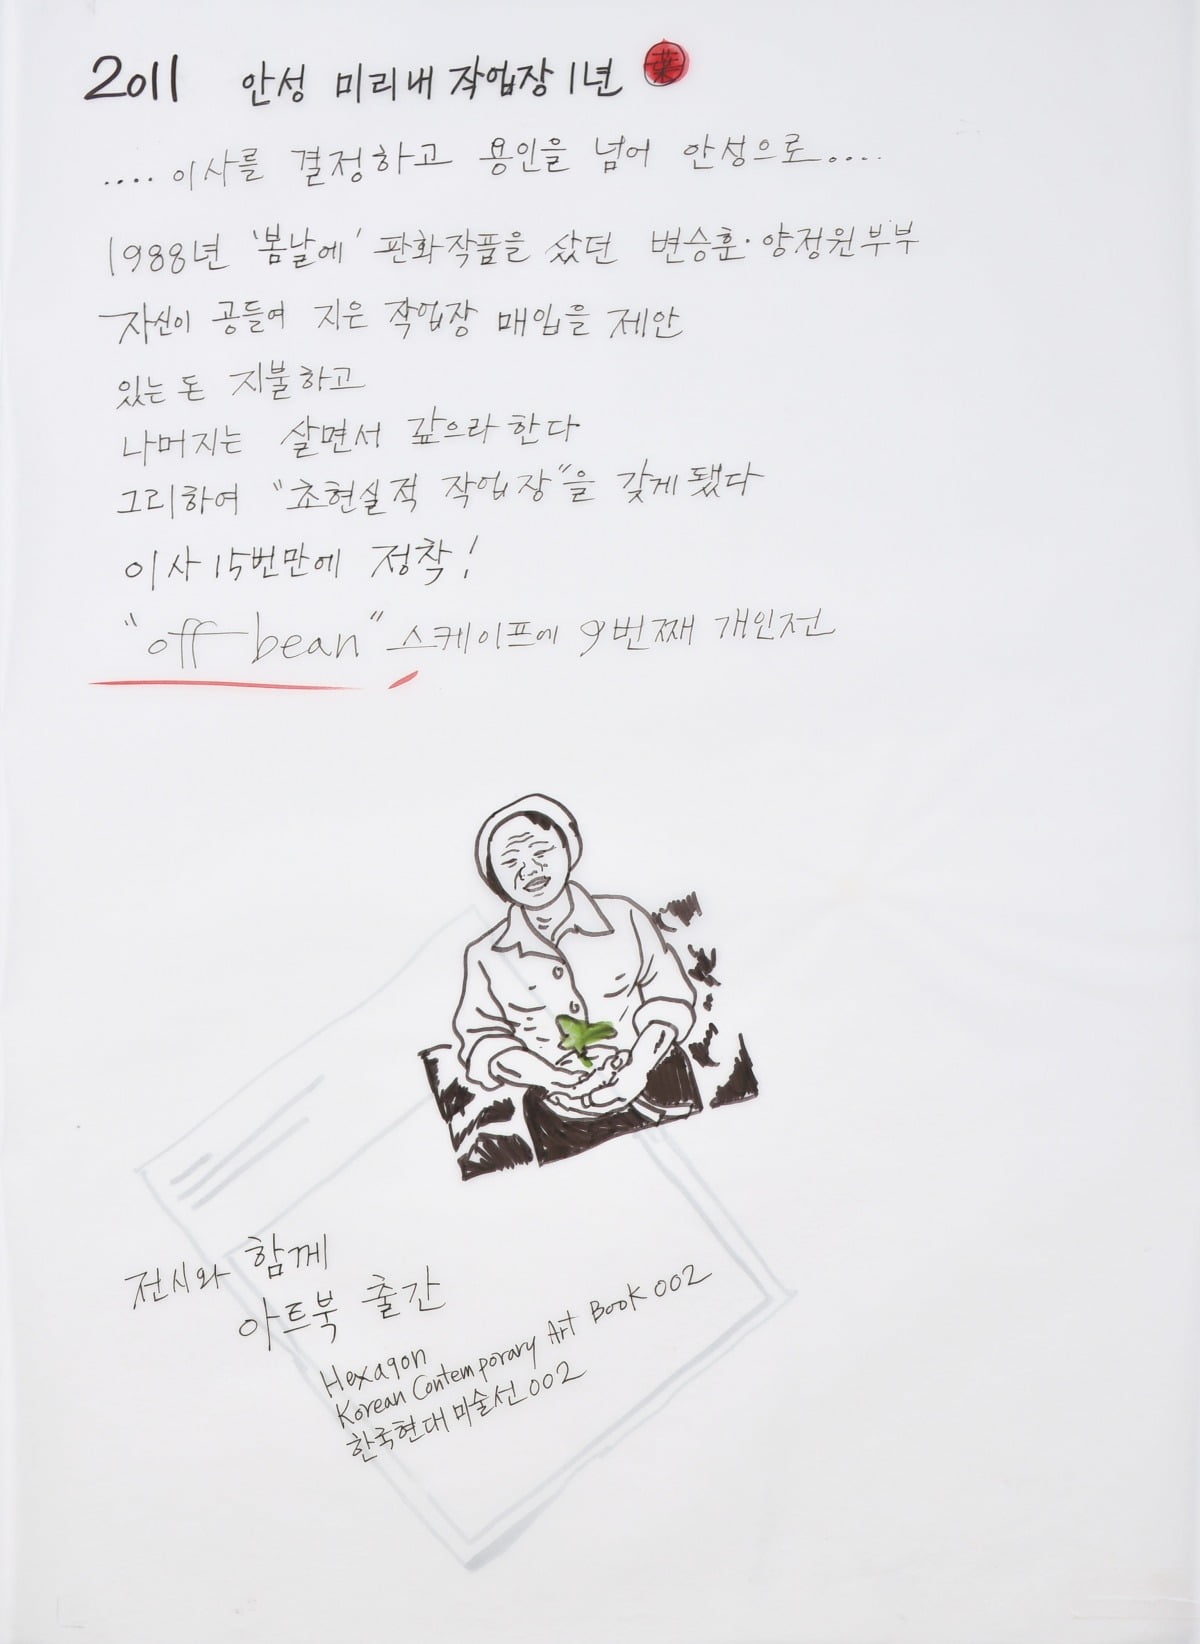 2011 안성 미리내 작업장 1년 葉
....이사를 결정하고 용인을 넘어 안성으로....
1988년 '봄날에' 판화작품을 샀던 변승훈·양정원부부
자신이 공들여 지은 작업장 매입을 제안
있는 돈 지불하고
나머지는 살면서 갚으라 한다
그리하여 "초현실적 작업장"을 갖게됐다
이사 15번만에 정착!
"off bean" 스케이프에 9번째 개인전
전시와 함께
아트북 출간
Hexagon
Korean Contemporary Art Book 002
한국현대미술선 002